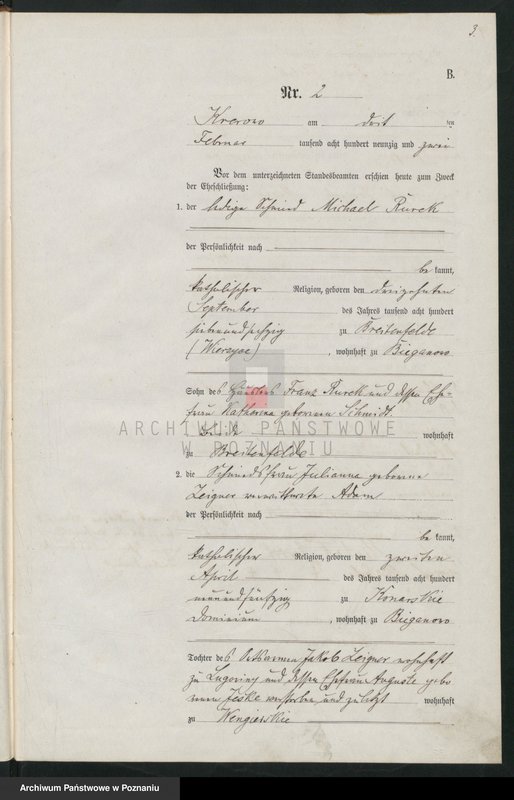 3.
B.
Nr. 2
Krerowo am drit ten
Februar tausend acht hundert neunzig und zwei
Vor dem unterzeichneten Standesbeamten erschien heute zum Zweck
der Eheschließung:
1. der ledige Schmied Michael Rurek
der Persönlichkeit nach
be kannt,
katholischer Religion, geboren den dreizehnten
September des Jahres tausend acht hundert
siebenundsechzig zu Breitenfelde
, wohnhaft zu Bieganowo
Sohn des Franz Rurek und dessen Ehe-
frau Katharina geborenen Schmidt
ARCHIWUM PAŃSTWOWE
W POZNANIU
wohnhaft
zu Breitenfelde
2. die Schmiedsfrau Julianna geborene
Zeigner verwittwete Adam
der Persönlichkeit nach
be kannt,
katholischer Religion, geboren den zweiten
April des Jahres tausend acht hundert
neunundfünfzig zu Konarskie
Dominium , wohnhaft zu Bieganowo
Tochter des Ortsarmen Jakob Zeigner wohnhaft
zu und dessen Ehefrau Auguste gebo
renen Jeske verstorben und zuletzt wohnhaft
zu Wengierskie
Archiwum Państwowe w Poznaniu